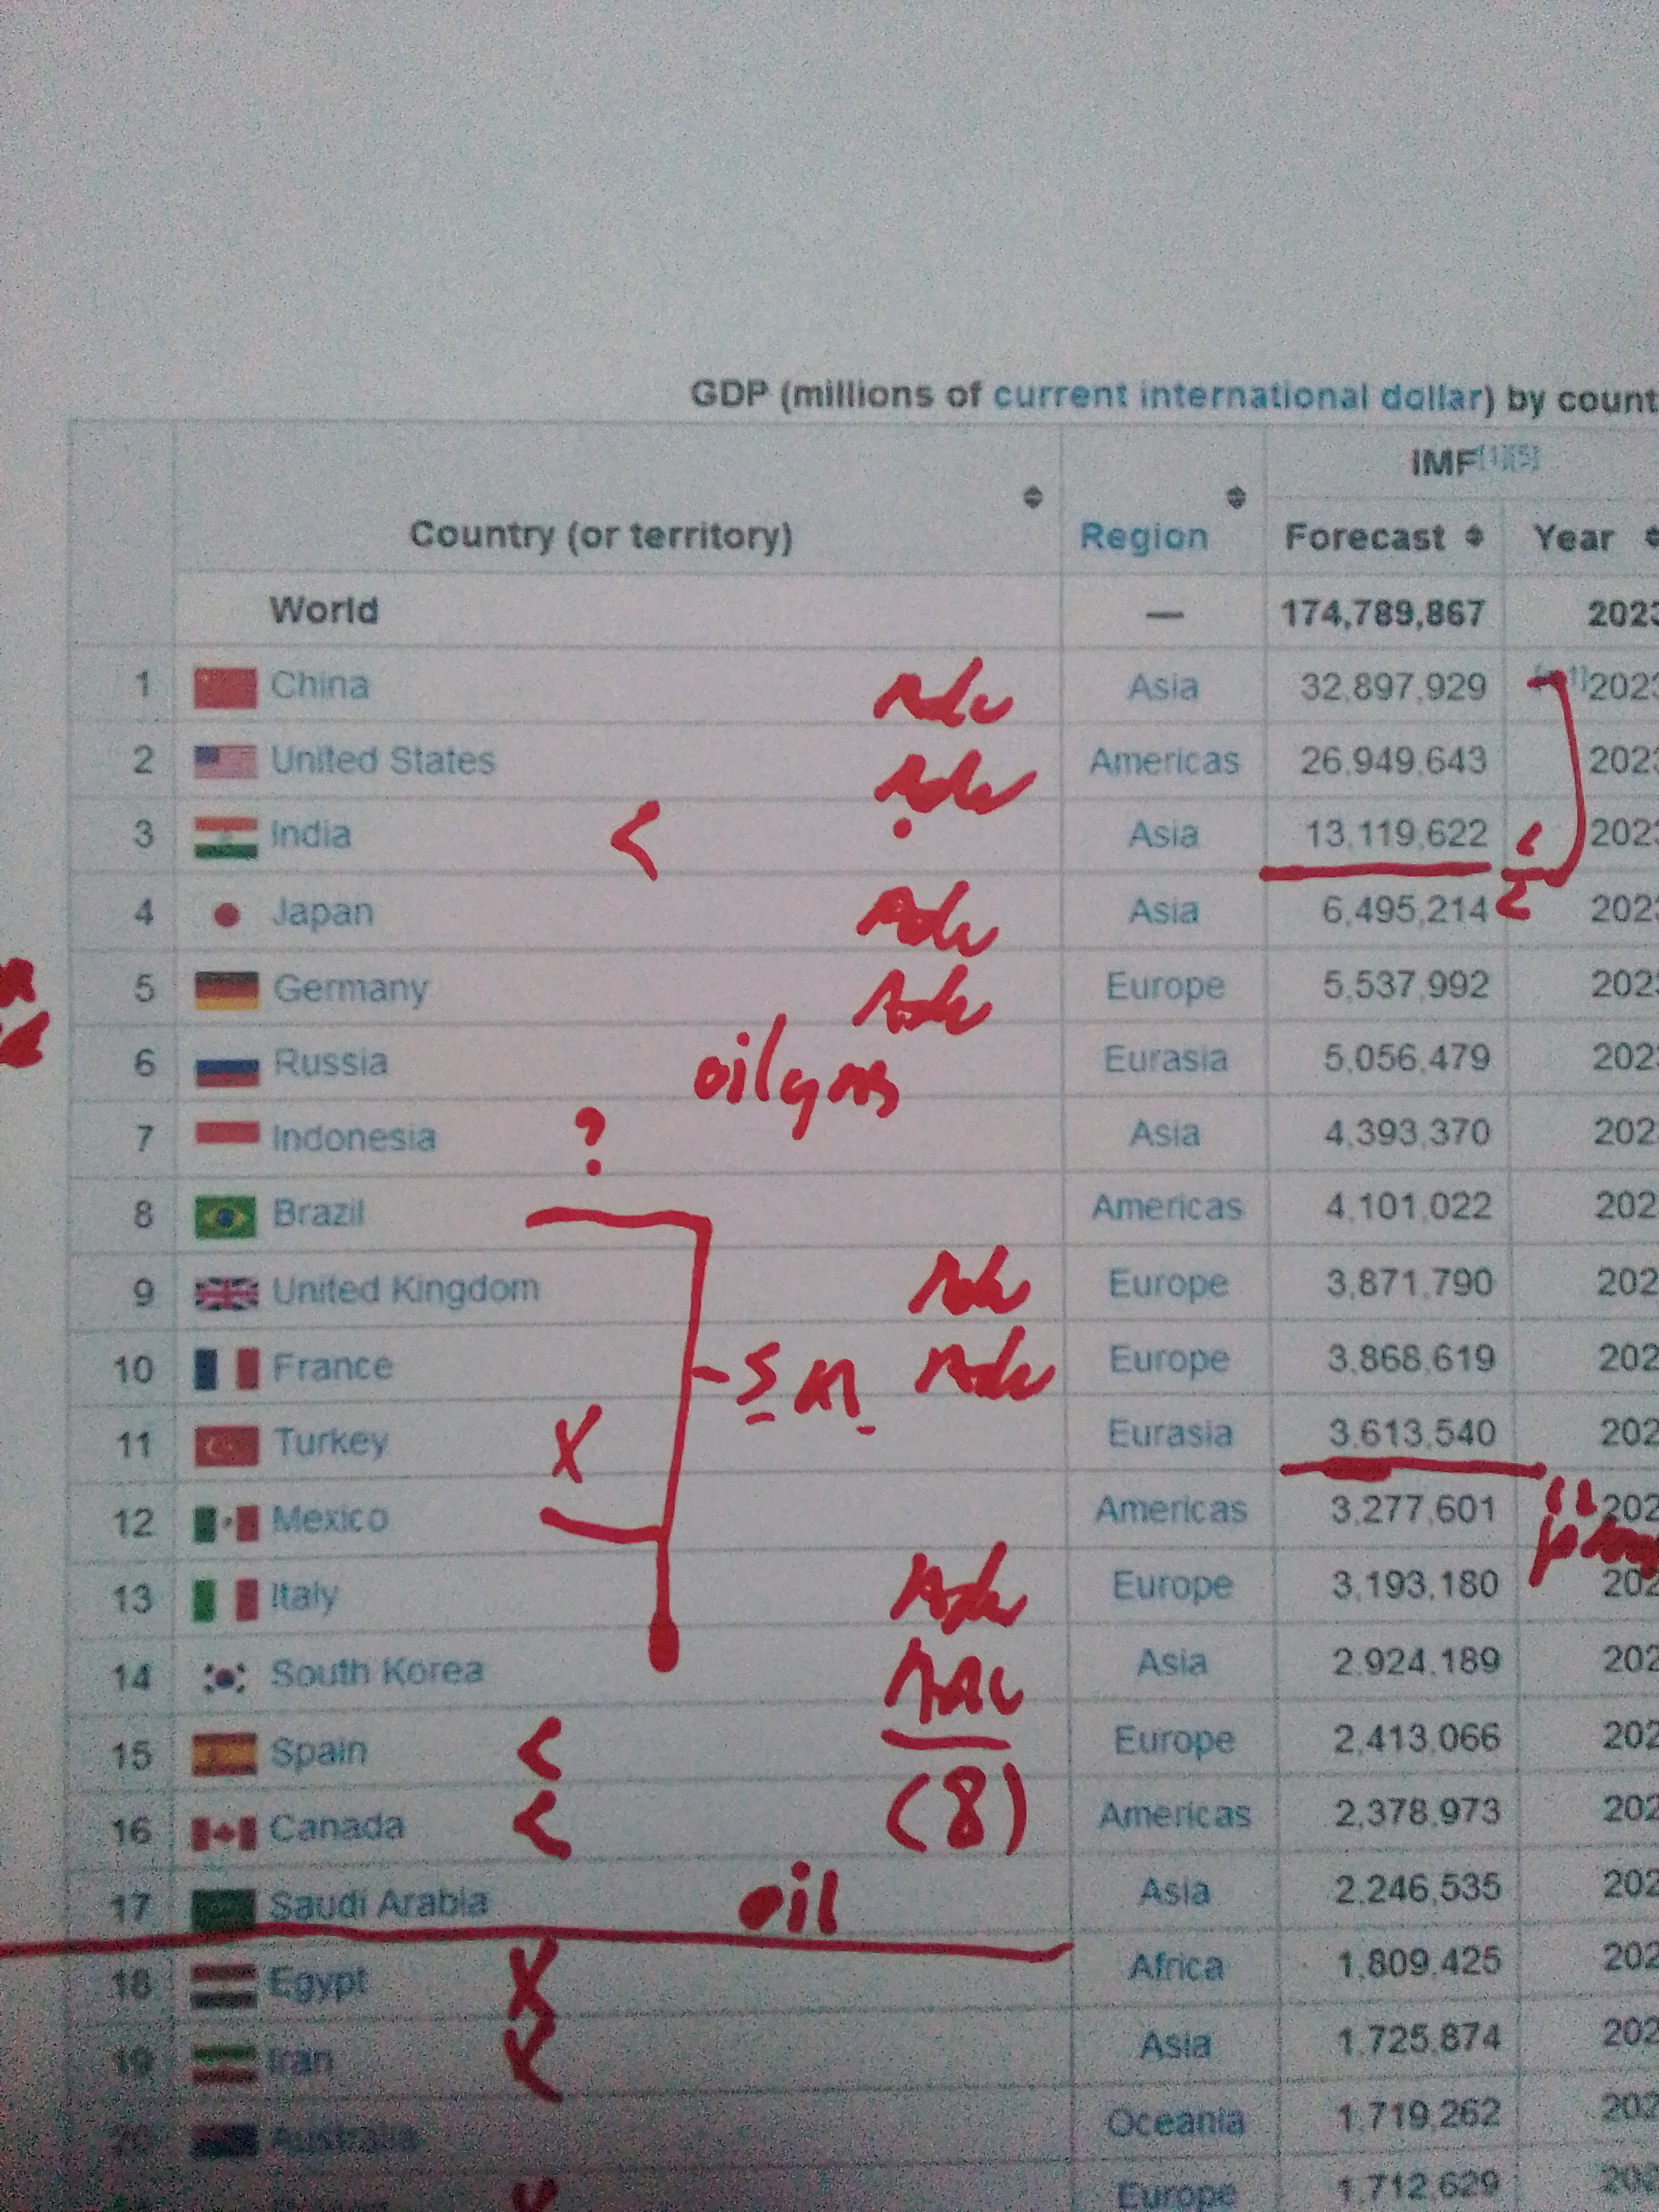 GDP (millions of current international dollar) by count
IMF[1][5]
Country (or territory) Region Forecast Year
World — 174,789,867 2023
1 China Asia 32,897,929 [n 1]2023
2 United States Americas 26,949,643 2023
3 India < Asia 13,119,622 2023
4 Japan Asia 6,495,214 2023
5 Germany Europe 5,537,992 202
6 Russia oil gas Eurasia 5,056,479 202
7 Indonesia ? Asia 4,393,370 202
8 Brazil Americas 4,101,022 202
9 United Kingdom Europe 3,871,790 202
10 France S M Europe 3,868,619 202
11 Turkey X Eurasia 3,613,540 202
12 Mexico Americas 3,277,601 202
13 Italy Europe 3,193,180 202
14 South Korea Asia 2,924,189 202
15 Spain < Europe 2,413,066 202
16 Canada < (8) Americas 2,378,973 202
17 Saudi Arabia oil Asia 2,246,535 202
18 Egypt X Africa 1,809,425 202
19 Iran Asia 1,725,874 202
20 Australia Oceania 1,719,262 202
Europe 1,712,629 202